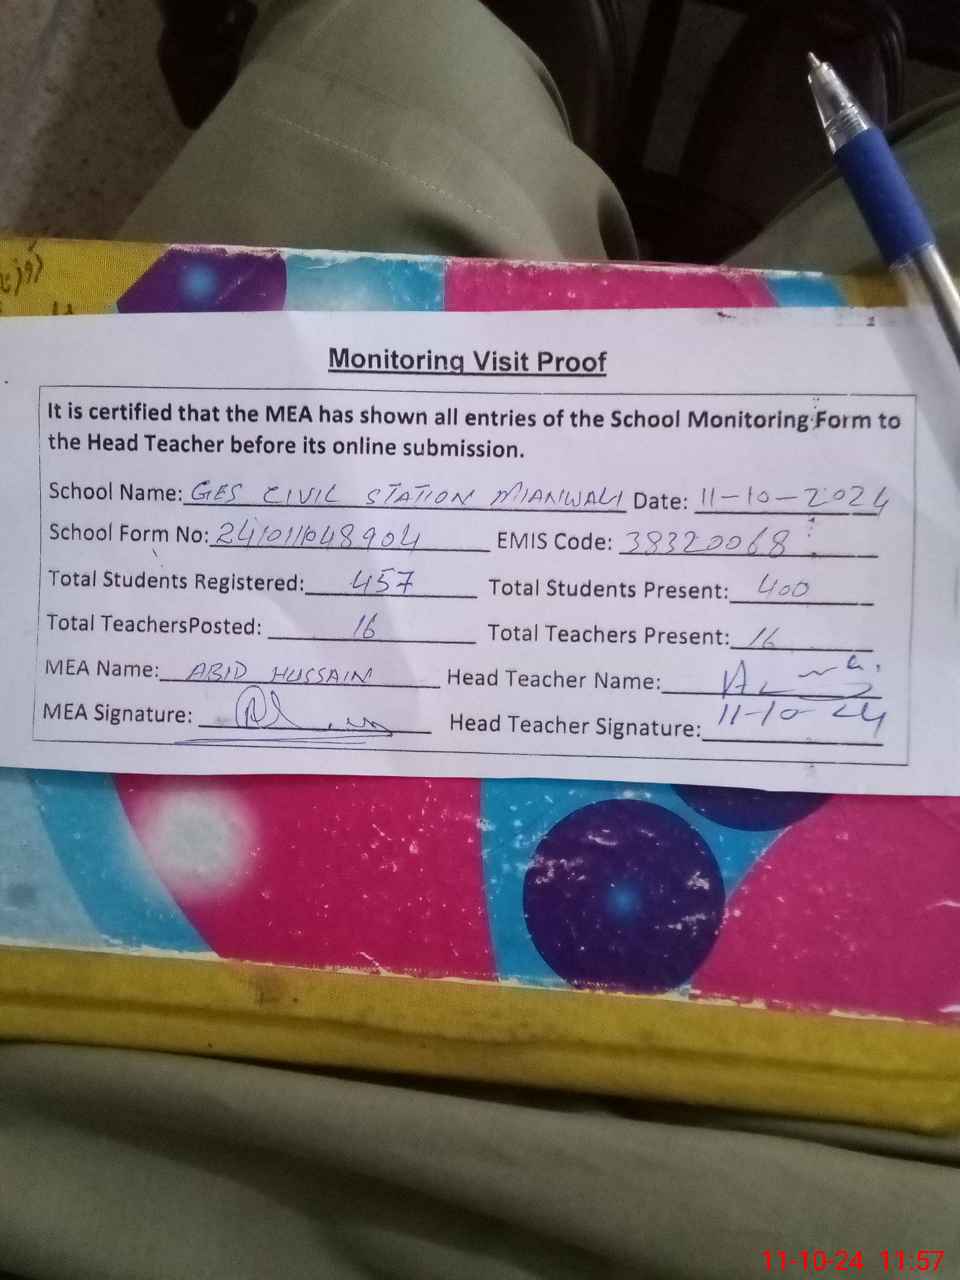 Monitoring Visit Proof
It is certified that the MEA has shown all entries of the School Monitoring Form to
the Head Teacher before its online submission.
School Name: GES CIVIL STATION MIANWALI Date: 11-10-2024
School Form No: 241011048904 EMIS Code: 38320068
Total Students Registered: 457 Total Students Present: 400
Total TeachersPosted: 16 Total Teachers Present: 16
MEA Name: ABID HUSSAIN Head Teacher Name:
MEA Signature: Head Teacher Signature: 11-10-24
11-10-24 11:57